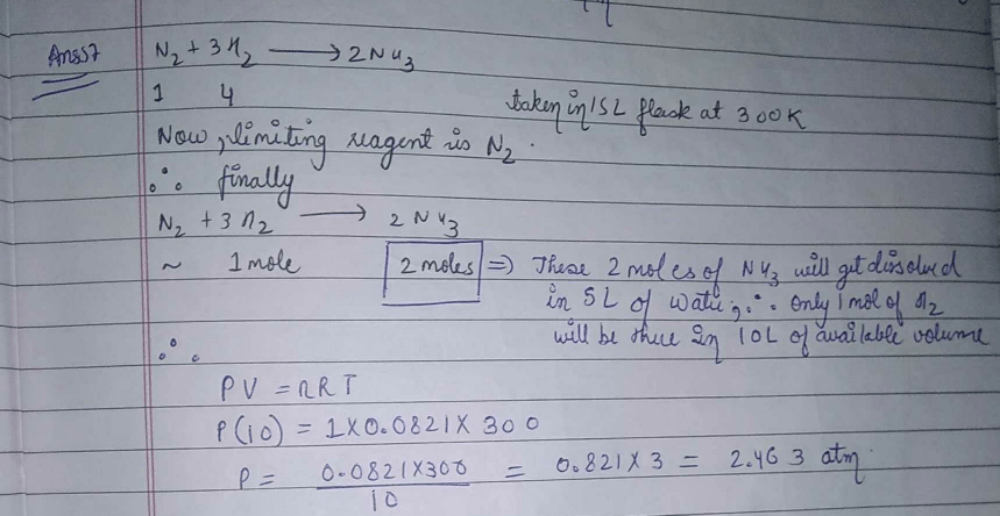 Ans57
N₂ + 3H₂ ⟶ 2NH₃
1 4
taken in 15L flask at 300K
Now, limiting reagent is N₂.
∴ finally
N₂ + 3H₂ ⟶ 2NH₃
~ 1mole 2 moles ⇒ These 2 moles of NH₃ will get dissolved
in 5L of water, ∴ only 1 mol of H₂
will be there in 10L of available volume
∴
PV = nRT
P(10) = 1X0.0821X 300
P = 0.0821X300 / 10 = 0.821X3 = 2.463 atm